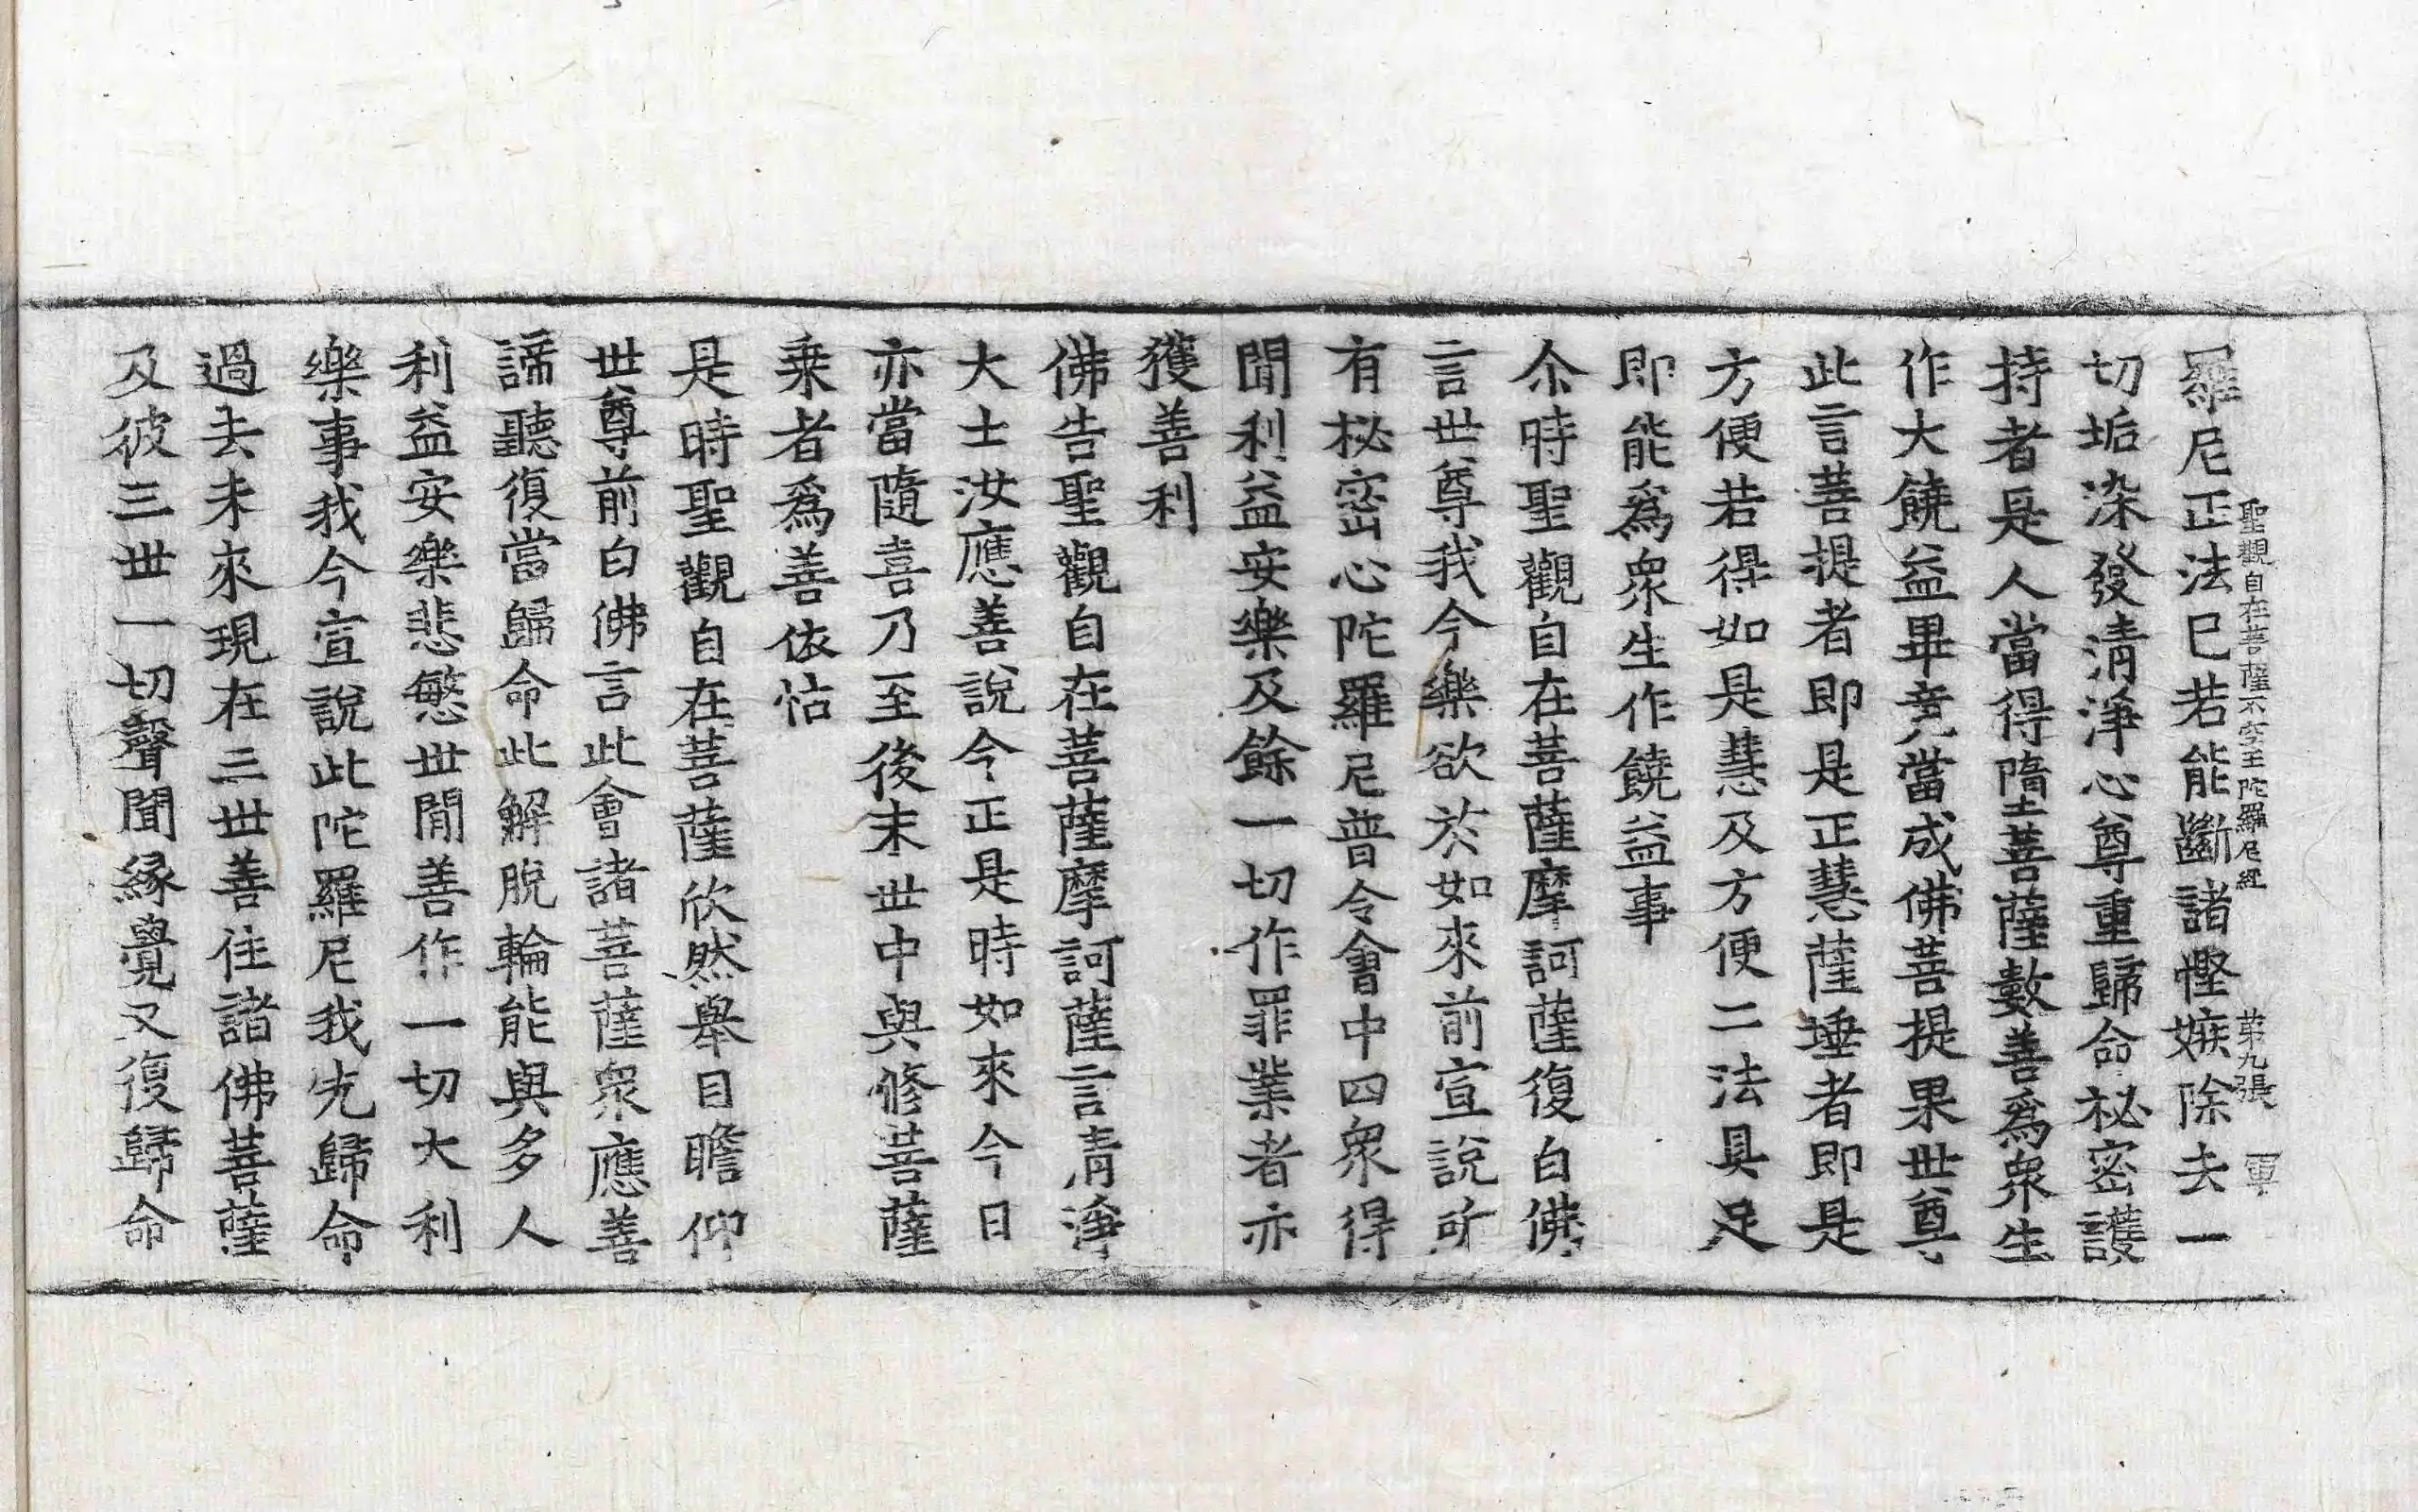 聖觀自在菩薩不空王陀羅尼經 第九張 軍
羅尼正法巳若能斷諸慳嫉除去一
切垢染發清淨心尊重歸命祕密護
持者是人當得隨菩薩數善爲衆生
作大饒益畢竟當成佛菩提果世尊
此言菩提者即是正慧薩埵者即是
方便若得如是慧及方便二法具足
即能爲衆生作饒益事
尒時聖觀自在菩薩摩訶薩復白佛
言世尊我今樂欲於如來前宣說所
有祕密心陀羅尼普令會中四衆得
聞利益安樂及餘一切作罪業者亦
獲善利
佛告聖觀自在菩薩摩訶薩言清淨
大士汝應善說今正是時如來今日
亦當隨喜乃至後末世中與修菩薩
乗者爲善依怙
是時聖觀自在菩薩欣然舉目瞻仰
世尊前白佛言此會諸菩薩衆應善
諦聽復當歸命此解脫輪能與多人
利益安樂悲愍世閒善作一切大利
樂事我今宣說此陀羅尼我先歸命
過去未來現在三世善住諸佛菩薩
及彼三世一切聲聞緣覺又復歸命